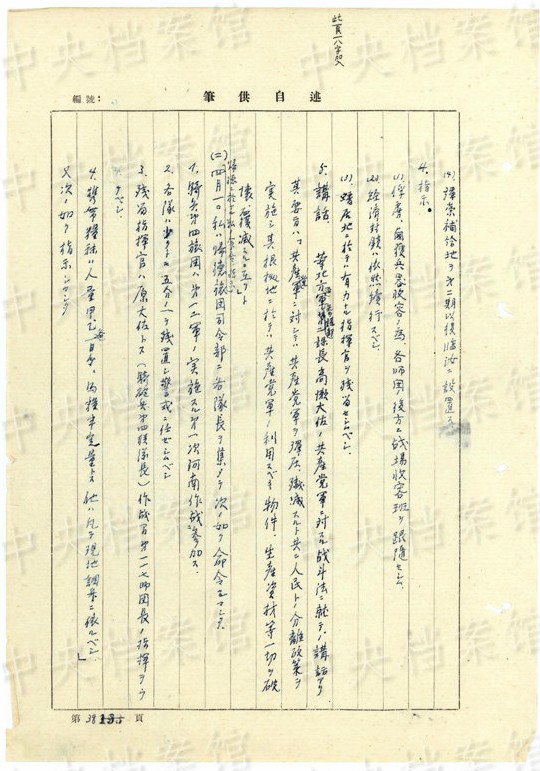 此頁一八字冄
編號：
筆供述自
(4) 弾薬補給地ヲ第二期以後臨汝ニ設置ス
4. 指示。
(1) 俘虜、鹵獲兵器收容ノ為各師団後方ニ战場收容班ヲ跟隨セシム
(2) 経済対鎖ハ依然續行スベシ
(3) 駐屯地ニ於テハ有力ナル指揮官ヲ残留セシムベシ
5. 講話 華北方面軍第二課長高橋大佐ノ共産党軍ニ対スル战斗法ニ就テノ講話アリ
其要旨ハ「共産党軍ニ対シテハ共産党軍ヲ弾圧、殲滅スルト共ニ人民トノ分離政策ヲ
実施シ其根拠地ニ於テハ共産党軍ノ利用スベキ物件、生産資材等一切ヲ破
壊覆滅スルニアリ」ト
(二) 四月一〇、私ハ帰徳旅団司令部ニ各隊長ヲ集メテ次ノ如ク命令シマシタ。
1. 騎兵第四旅団ハ第一二軍ノ実施スル第一次河南作战ニ参加ス
2. 各隊ハ少クトモ五分ノ一ヲ残置シ警戒ニ任セシムベシ
3. 残留指揮官ハ原大佐トス(騎砲兵第四聯隊長)作战間第一一七師団長ノ指揮ヲウ
クベシ
4. 携帯糧秣ハ人、馬糧半定量トス他ハ凡テ現地調弁ニ依ルベシ」
又次ノ如ク指示シマシタ
第 38 頁
中央档案馆